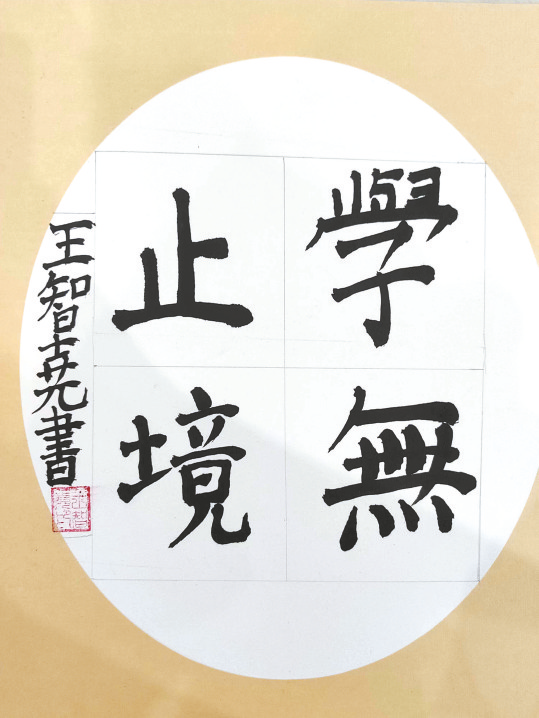 學無
止境
王智堯書